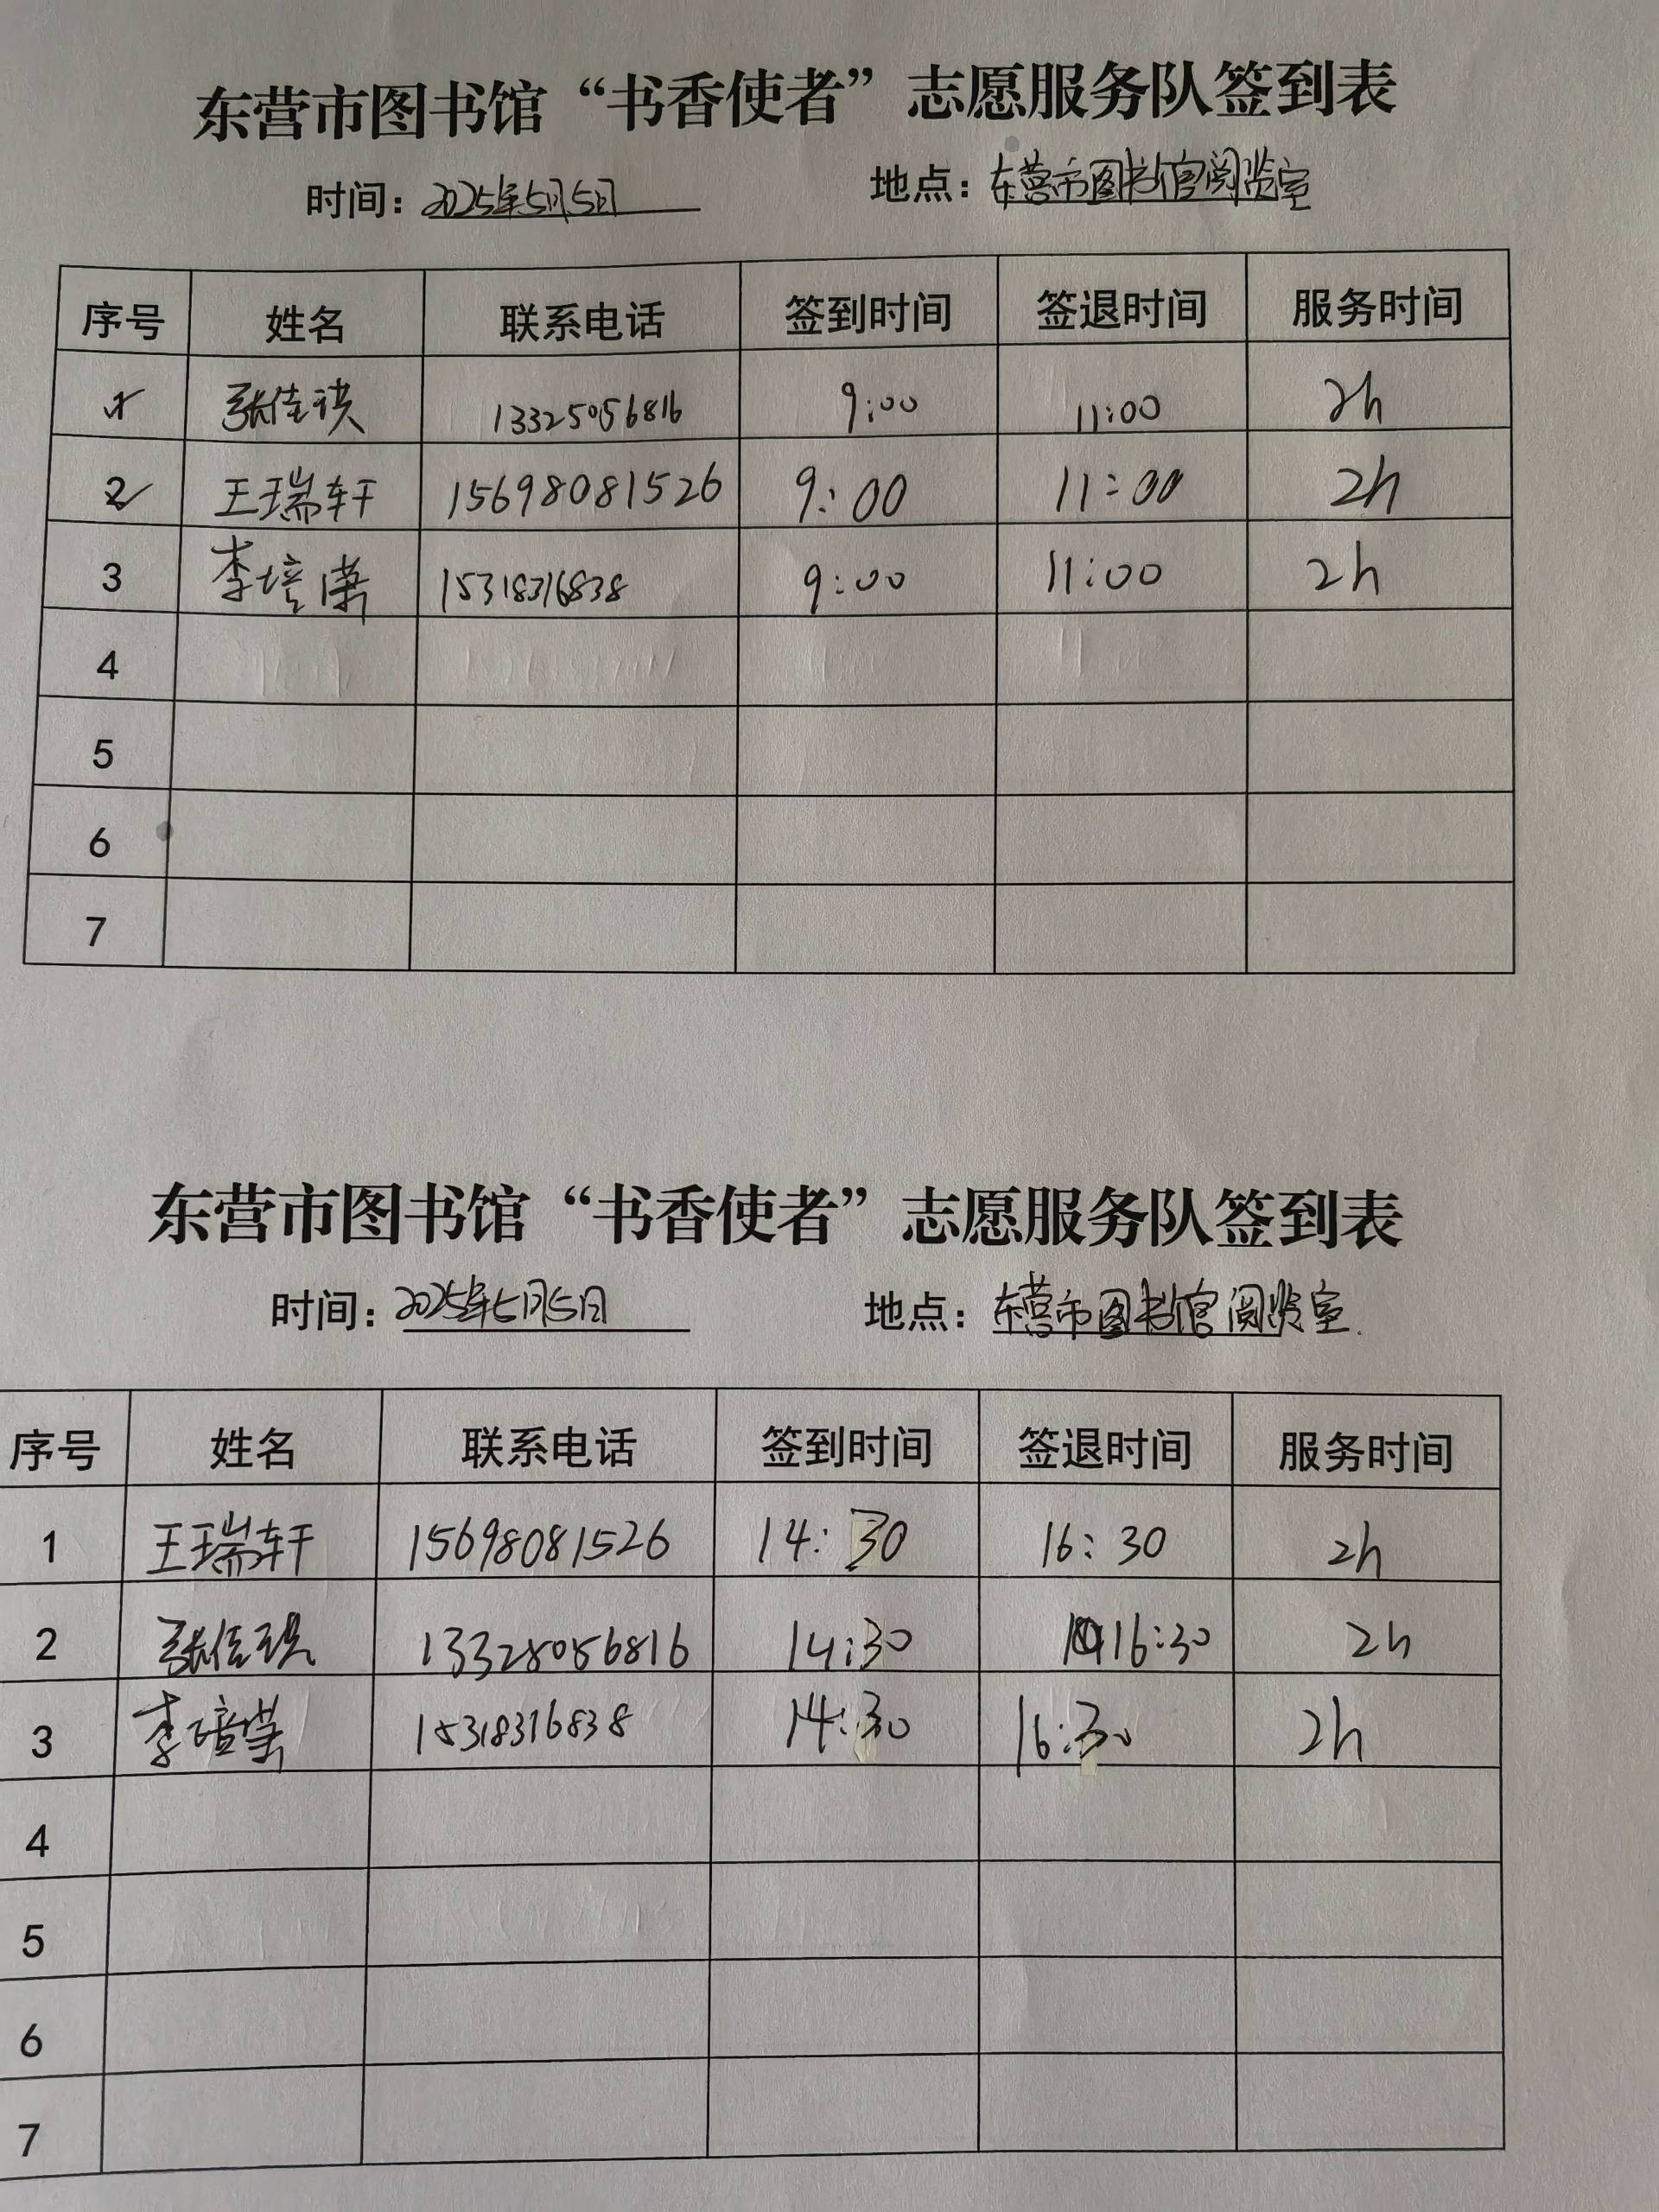 东营市图书馆“书香使者”志愿服务队签到表
时间：2025年5月5日 地点：东营市图书馆阅览室
序号 姓名 联系电话 签到时间 签退时间 服务时间
1 张佳琪 13325056816 9:00 11:00 2h
2 王瑞轩 15698081526 9:00 11:00 2h
3 李培 15318316838 9:00 11:00 2h
4
5
6
7
东营市图书馆“书香使者”志愿服务队签到表
时间：2025年5月5日 地点：东营市图书馆阅览室.
序号 姓名 联系电话 签到时间 签退时间 服务时间
1 王瑞轩 15698081526 14:30 16:30 2h
2 张佳琪 13325056816 14:30 16:30 2h
3 李培 15318316838 14:30 16:30 2h
4
5
6
7